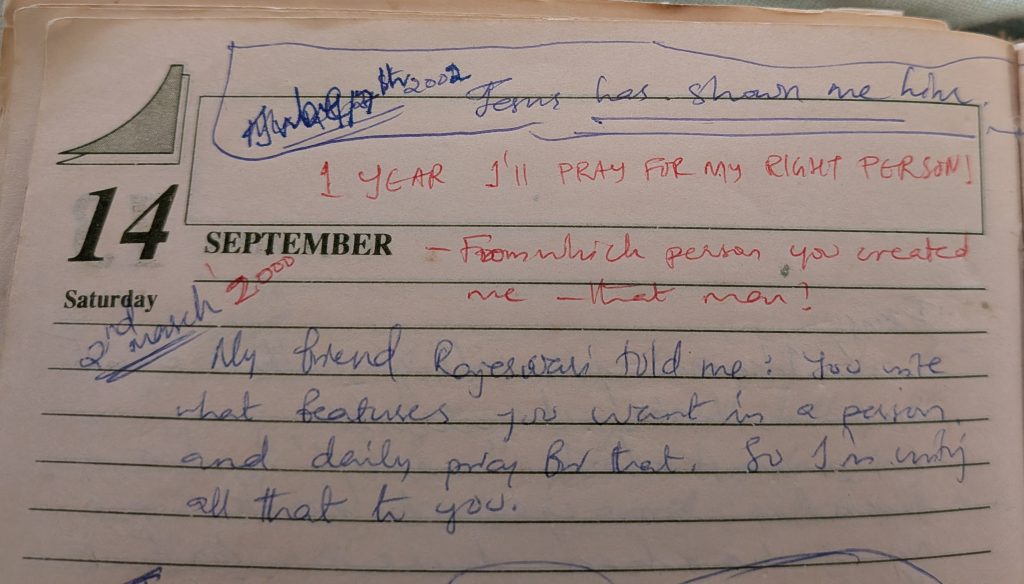 2002 Jesus has shown me him.
1 YEAR I'll PRAY FOR MY RIGHT PERSON!
14
SEPTEMBER - From which person you created
Saturday me - that man?
2nd March 2000
My friend Rajeswari told me: You write
what features you want in a person
and daily pray for that. So I'm writing
all that to you.